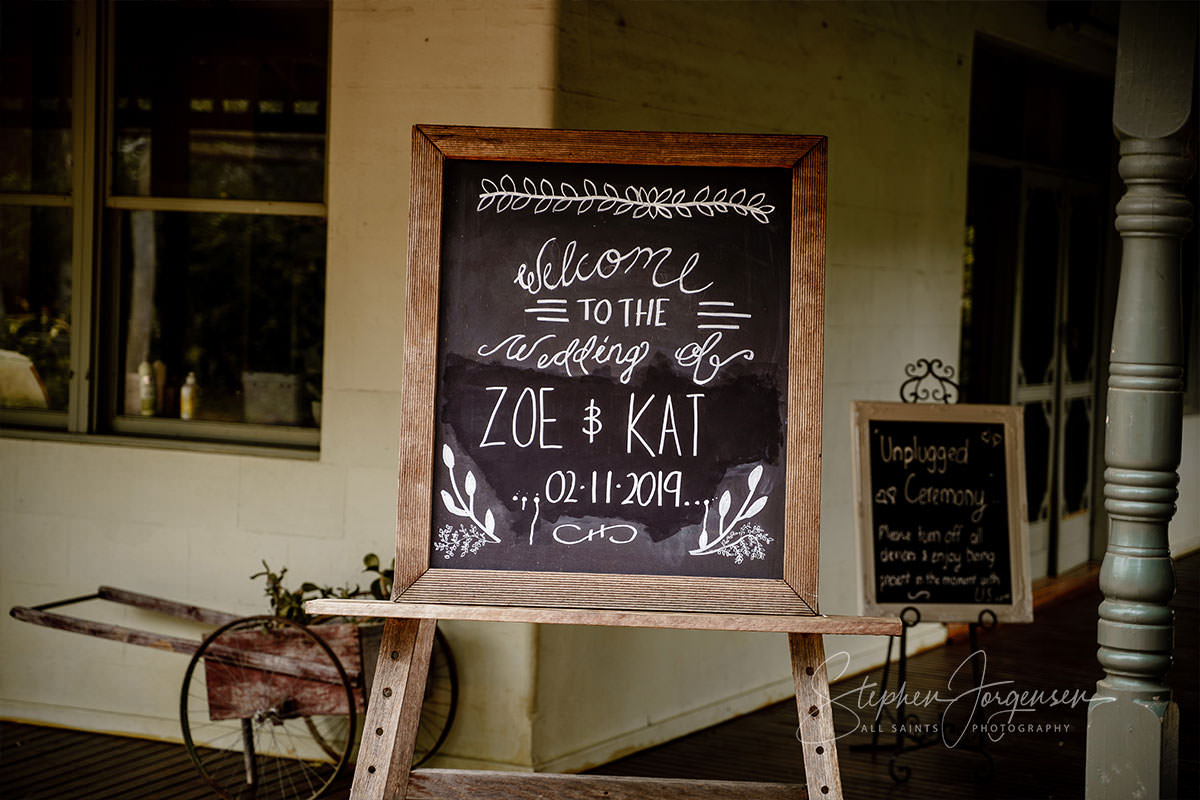 Welcome
TO THE
Wedding of
ZOE & KAT
02·11·2019
Unplugged
Ceremony
Please turn off all
devices & enjoy being
present in the moment with
US
Stephen Jorgensen
ALL SAINTS PHOTOGRAPHY